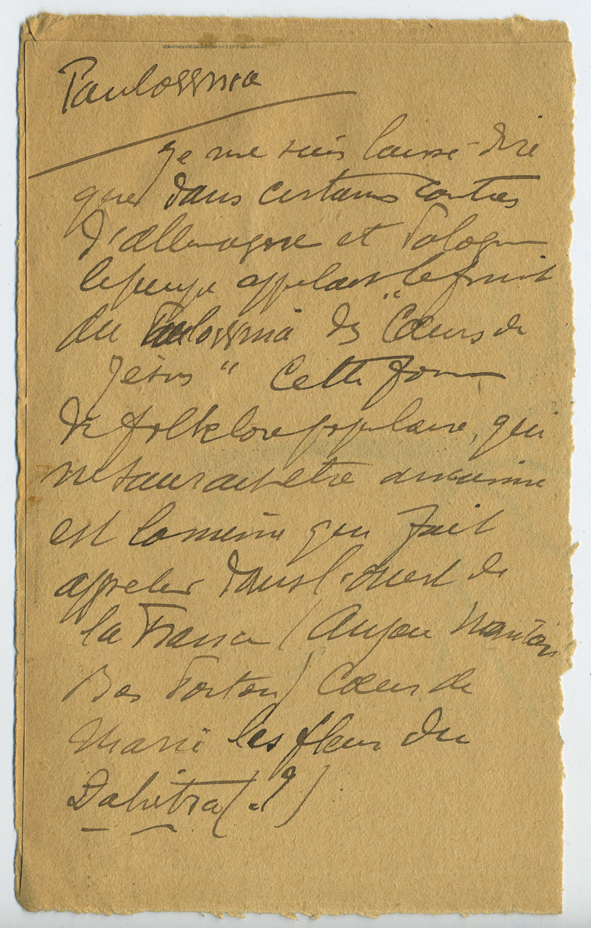 Paulossnia
Je me suis laissé dire
que dans certaines contrées
d'allemagne et Pologne
le peuple appelait le fruit
du Paulossnia des "Coeurs de
Jésus" Cette forme
de folklore populaire, qui
ne saurait être
est la même qui fait
appeler dans l'ouest de
la France (Anjou
Bas Poitou) Coeur de
Marie les fleurs du
Dalietra (.?)